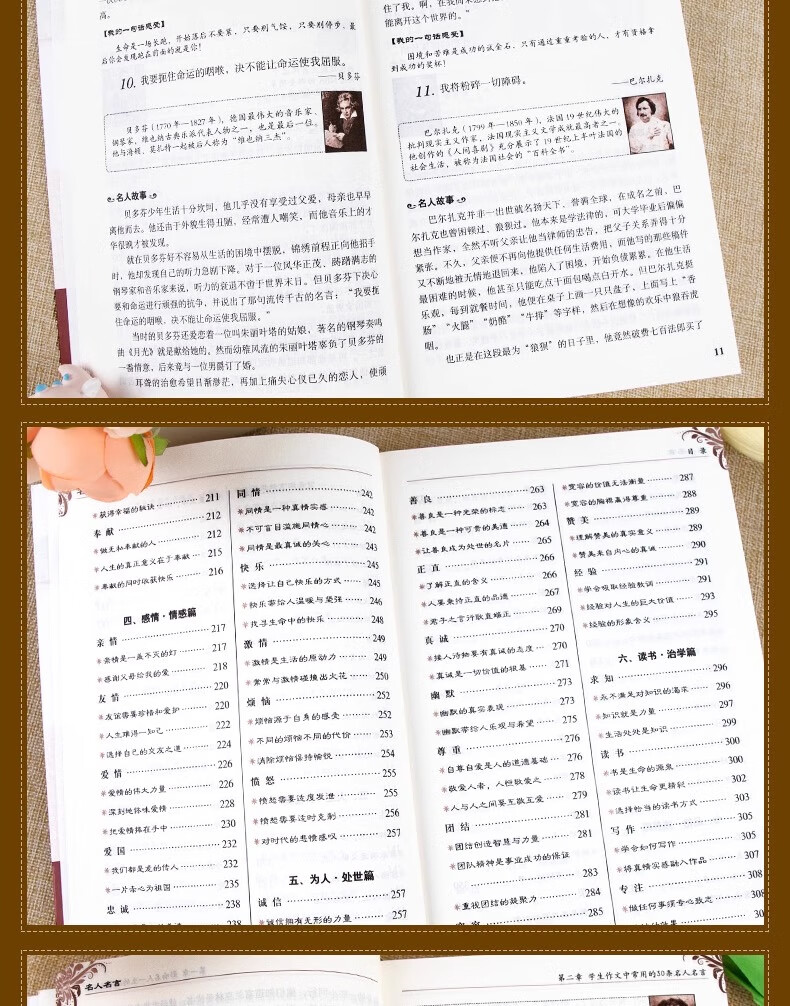 高。
【我的一句话感受】
生命是一场长跑，开始落后不要紧，只要别气馁，只要别停步，最
后你会发现跑在前面的就是你！
10. 我要扼住命运的咽喉，决不能让命运使我屈服。
——贝多芬
贝多芬（1770 年—1827 年），德国最伟大的音乐家、
钢琴家，维也纳古典乐派代表人物之一，也是最后一位。
他与海顿、莫扎特一起被后人称为“维也纳三杰”。
名人故事
贝多芬少年生活十分坎坷，他几乎没有享受过父爱，母亲也早早
离他而去。他还由于外貌生得丑陋，经常遭人嘲笑，而他音乐上的才
华很晚才被发现。
就在贝多芬好不容易从生活的困境中摆脱，锦绣前程正向他招手
时，他却发现自己的听力急剧下降，对于一位风华正茂、踌躇满志的
钢琴家和音乐家来说，听力的衰退不啻于世界末日。但贝多芬下决心
要和命运进行顽强的抗争，并说出了那句流传千古的名言：“我要扼
住命运的咽喉，决不能让命运使我屈服。”
当时的贝多芬还爱恋着一位叫朱丽叶塔的姑娘，著名的钢琴奏鸣
曲《月光》就是献给她的，然而幼稚风流的朱丽叶塔辜负了贝多芬的
一番情意，后来竟与一位男爵订了婚。
耳聋的治愈希望日渐渺茫，再加上痛失心仪已久的恋人，使顽
能离开这个世界的。”
【我的一句话感受】
困境和苦难是成功的试金石，只有通过重重考验的人，才有资格拿
到成功的奖杯！
11. 我将粉碎一切障碍。
——巴尔扎克
巴尔扎克（1799 年—1850 年），法国 19 世纪伟大的
批判现实主义作家，法国现实主义文学成就最高者之一。
他创作的《人间喜剧》充分展示了 19 世纪上半叶法国的
社会生活，被称为法国社会的“百科全书”。
名人故事
巴尔扎克并非一出世就名扬天下、誉满全球，在成名之前，巴
尔扎克也曾困顿过、狼狈过。他本来是学法律的，可大学毕业后偏偏
想当作家，全然不听父亲让他当律师的忠告，把父子关系弄得十分
紧张。不久，父亲便不再向他提供任何生活费用，而他写的那些稿件
又不断地被无情地退回来，他陷入了困境，开始负债累累。在他生活
最困难的时候，他甚至只能吃点干面包喝点白开水。但巴尔扎克挺
乐观，每到就餐时间，他便在桌子上画一只只盘子，上面写上“香
肠”“火腿”“奶酪”“牛排”等字样，然后在想像的欢乐中狼吞虎
咽。
也正是在这段最为“狼狈”的日子里，他竟然破费七百法郎买了
11
获得幸福的秘诀 211
奉献 212
做无私奉献的人 212
人生的真正意义在于奉献 215
奉献的同时收获快乐 216
四、感情·情感篇
亲情 217
亲情是一盏不灭的灯 217
感谢父母给我的爱 218
友情 220
友谊需要珍惜和爱护 220
人生难得一知己 222
选择自己的交友之道 224
爱情 226
爱情的伟大力量 226
深刻地体味爱情 228
把爱情握在手中 230
爱国 232
我们都是龙的传人 232
一片赤心为祖国 235
忠诚 238
238
同情 242
同情是一种真情实感 242
不可盲目滥施同情心 242
同情是最真诚的关心 243
快乐 245
选择让自己快乐的方式 245
快乐带给人温暖与坚强 246
找寻生命中的快乐 248
激情 249
激情是生活的原动力 249
常常与激情碰撞出火花 250
烦恼 252
烦恼源于自身的感受 252
不同的烦恼不同的代价 253
消除烦恼保持愉悦 254
愤怒 255
愤怒需要适度发泄 255
愤怒需要适时克制 256
对时代的悲愤感叹 257
五、为人·处世篇
诚信 257
诚信拥有无形的力量 257
目录
善良 263
善良是一种光荣的标志 263
善良是一种可贵的美德 264
让善良成为处世的名片 265
正直 266
了解正直的含义 266
人要秉持正直的品德 267
君子之言行耿直端正 269
真诚 270
待人诗物要有真诚的态度 270
真诚是一切价值的根基 271
幽默 273
幽默的真实表现 273
幽默带给人乐观与希望 275
尊重 276
自尊自爱是人的道德基础 276
敬爱人者，人恒敬爱之 278
人与人之间要互敬互爱 279
团结 281
团结创造智慧与力量 281
团队精神是事业成功的保证
283
重视团结的凝聚力 284
285
宽容的价值无法衡量 287
宽容的胸襟赢得尊重 288
赞美 289
理解赞美的真实意义 289
赞美来自内心的真诚 290
经验 291
学会吸取经验教训 291
经验对人生的巨大价值 293
经验的形象含义 295
六、读书·治学篇
求知 296
永不满足对知识的渴求 296
知识就是力量 297
生活处处是知识 299
读书 300
书是生命的源泉 300
读书让生命更精彩 302
选择恰当的读书方式 303
写作 305
学会如何写作 305
将真情实感融入作品 307
专注 308
做任何事须专心致志 308
名人名言
第二章 学生作文中常用的30条名人名言